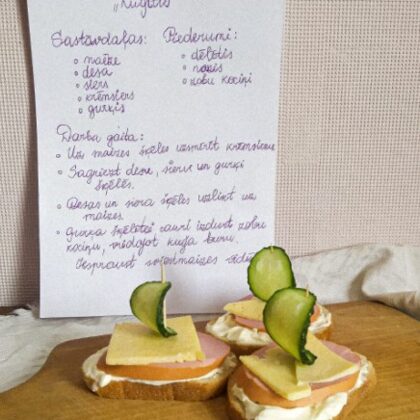 "Kuģītis"
Sastāvdaļas: Piederumi:
◦ maize ◦ dēlītis
◦ desa ◦ nazis
◦ siers ◦ zobu kociņi
◦ krēmsiers
◦ gurķis
Darba gaita:
◦ Uz maizes šķēles uzsmērēt krēmsieru
◦ Sagriezt desu, sieru un gurķi
šķēlēs.
◦ Desas un siera šķēles uzlikt uz
maizes.
◦ Gurķa šķēlītei cauri izdurt zobu
kociņu, veidojot kuģa buru.
Iespraust sviestmaizes vidū.